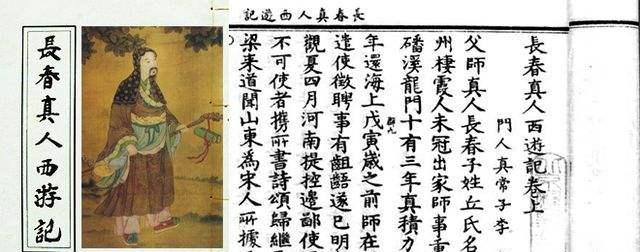 長春真人西游記
長春真人西遊記
長春真人西遊記卷上
門人真常子李
父師真人長春子姓丘氏名
州棲霞人未冠出家師事重
磻溪龍門十有三年真積力
年還海上戊寅歲之前師在
遣使徵聘事有齟齬遂已明
觀夏四月河南提控邊鄙使
不可使者攜所書詩頌歸繼
梁来道聞山東為宋人所據